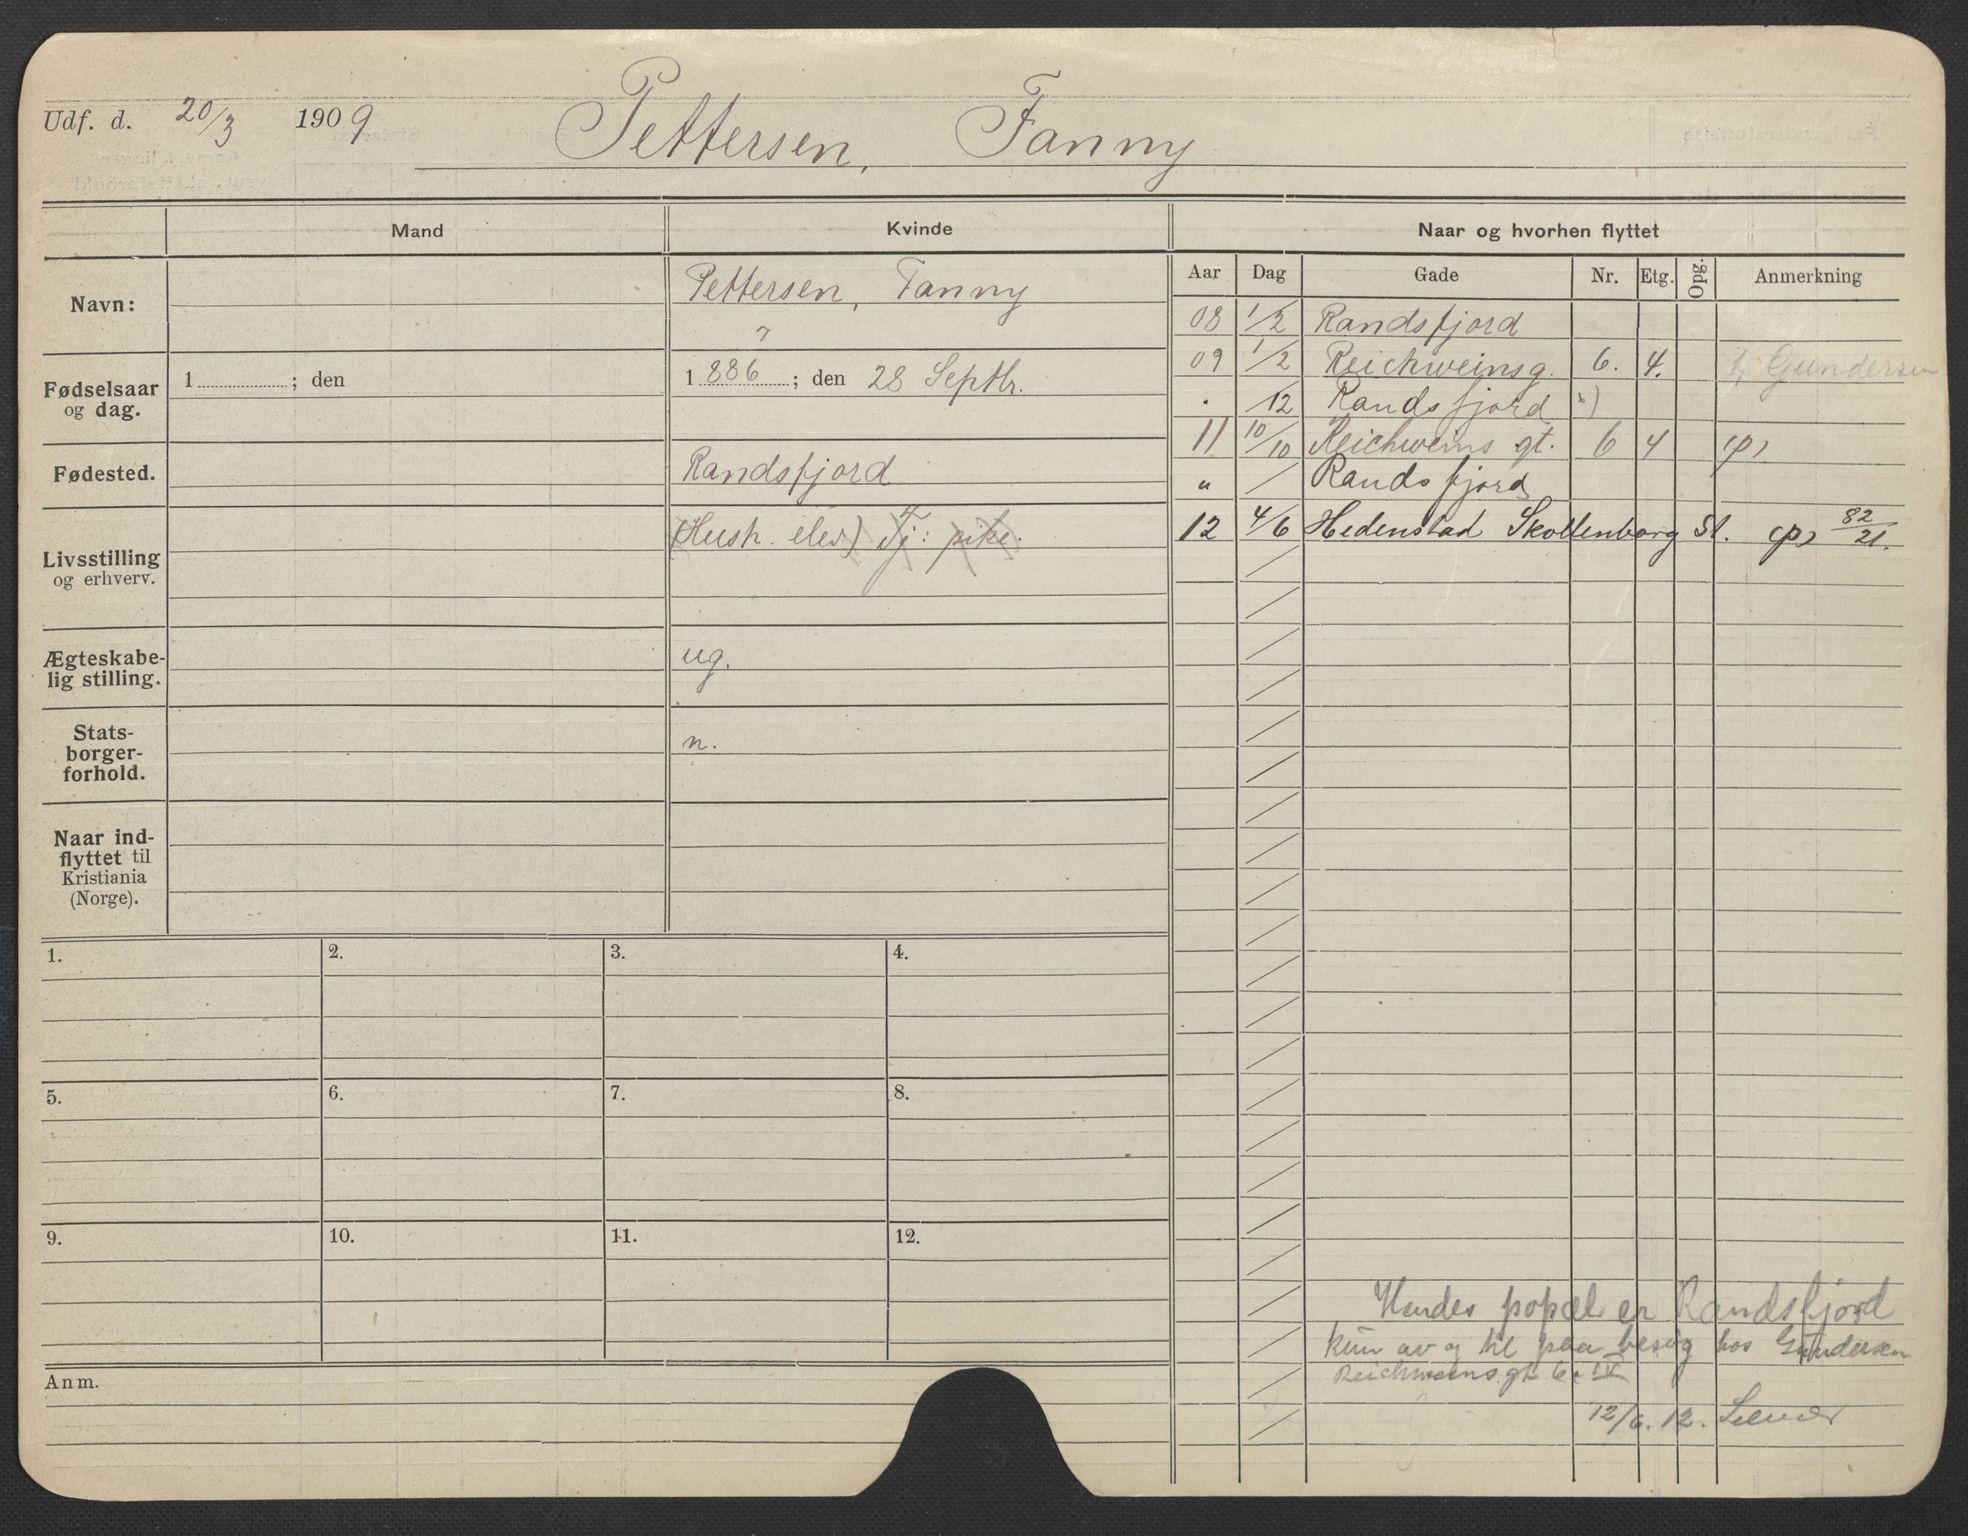 Udf. d. 20/3 1909 Pettersen, Fanny
Mand
Kvinde
Naar og hvorhen flyttet
Navn:
Pettersen, Fanny
Fødselsaar
og dag.
1 ; den
1 886 ; den 28 Septbr.
Fødested.
Randsfjord
Livsstilling
og erhverv.
(Hush. elev) Tj: pike.
Ægteskabe-
lig stilling.
ug.
Stats-
borger-
forhold.
n.
Naar ind-
flyttet til
Kristiania
(Norge).
1. 2. 3. 4.
5. 6. 7. 8.
9. 10. 11. 12.
Anm.
Aar Dag Gade Nr. Etg. Opg. Anmerkning
08 1/2 Randsfjord
09 1/2 Reichweinsg. 6. 4. Gundersen
/12 Randsfjord
11 10/10 Reichweins gt. 6 4 (p)
" / Randsfjord
12 4/6 Hedenstad Skollenborg St. (p) 82/21.
Hendes popæl er Randsfjord
kun av og til paa besøg hos Gundersen
Reichweins.gt 6. IV
12/6. 12.